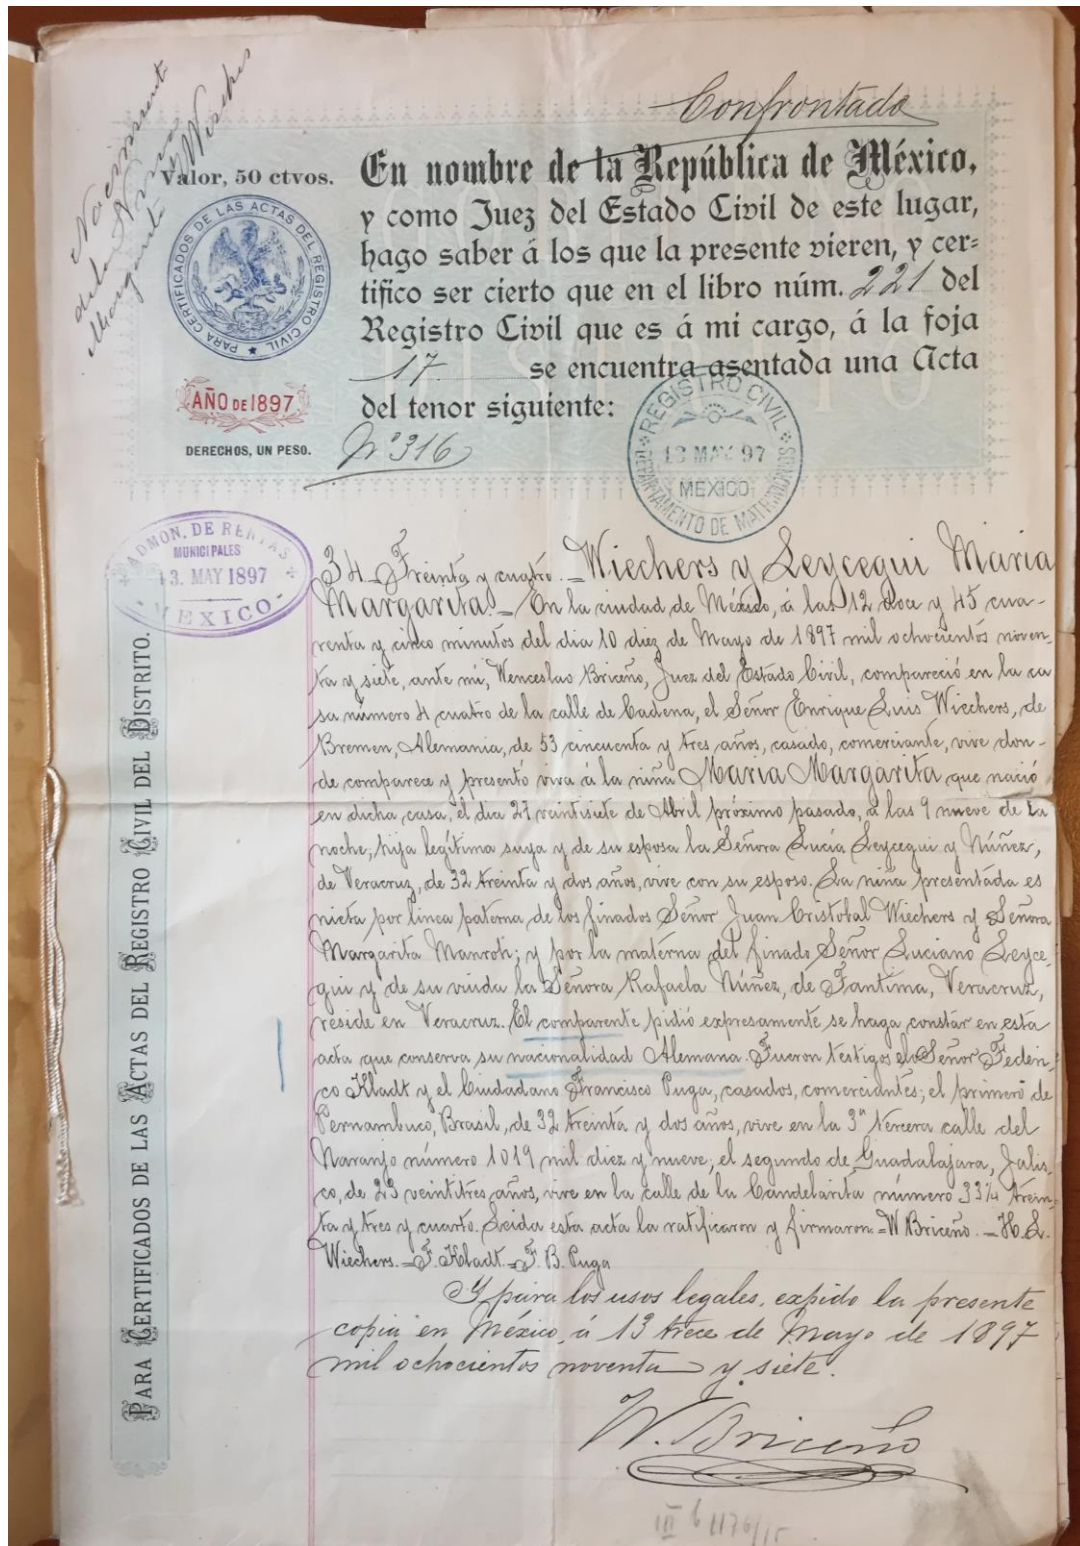 Confrontado
Nacimiento
de la Niña
Margarita Wiechers
Valor, 50 ctvos.
En nombre de la República de México,
y como Juez del Estado Civil de este lugar,
hago saber á los que la presente vieren, y cer=
tifico ser cierto que en el libro núm. 221 del
Registro Civil que es á mi cargo, á la foja
17 se encuentra asentada una Acta
del tenor siguiente:
PARA CERTIFICADOS DE LAS ACTAS DEL REGISTRO CIVIL
AÑO DE 1897
DERECHOS, UN PESO.
Nº 316
REGISTRO CIVIL
13 MAY 97
MEXICO
DEPARTAMENTO DE MATRIMONIOS
ADMON. DE RENTAS
MUNICIPALES
13. MAY 1897
MEXICO
PARA CERTIFICADOS DE LAS ACTAS DEL REGISTRO CIVIL DEL DISTRITO.
34 Treinta y cuatro. Wiechers y Leycegui Maria
Margarita. En la ciudad de México, á las 12 doce y 45 cua-
renta y cinco minutos del dia 10 diez de Mayo de 1897 mil ochocientos noven-
ta y siete, ante mí, Wenceslao Briceño, Juez del Estado Civil, compareció en la ca
sa número 4 cuatro de la calle de Cadena, el Señor Enrique Luis Wiechers, de
Bremen, Alemania, de 53 cincuenta y tres años, casado, comerciante, vive don-
de comparece y presentó viva á la niña Maria Margarita que nació
en dicha casa, el dia 27 veintisiete de Abril próximo pasado, á las 9 nueve de la
noche, hija legítima suya y de su esposa la Señora Lucía Leycegui y Núñez,
de Veracruz, de 32 treinta y dos años, vive con su esposo. La niña presentada es
nieta por linea paterna de los finados Señor Juan Cristobal Wiechers y Señora
Margarita Manroth; y por la materna del finado Señor Luciano Leyce-
gui y de su viuda la Señora Rafaela Núñez, de Tantima, Veracruz,
reside en Veracruz. El comparente pidió expresamente se haga constar en esta
acta que conserva su nacionalidad Alemana. Fueron testigos el Señor Federi-
co Kladt y el Ciudadano Francisco Puga, casados, comerciantes; el primero de
Pernambuco, Brasil, de 32 treinta y dos años, vive en la 3ª tercera calle del
Naranjo número 1019 mil diez y nueve; el segundo de Guadalajara, Jalis-
co, de 23 veintitres años, vive en la calle de la Candelarita número 33¼ trein-
ta y tres y cuarto. Leida esta acta la ratificaron y firmaron = W. Briceño. = H. L.
Wiechers. = F. Kladt = F. B. Puga
Y para los usos legales, expido la presente
copia en México, á 13 trece de Mayo de 1897
mil ochocientos noventa y siete.
W. Briceño